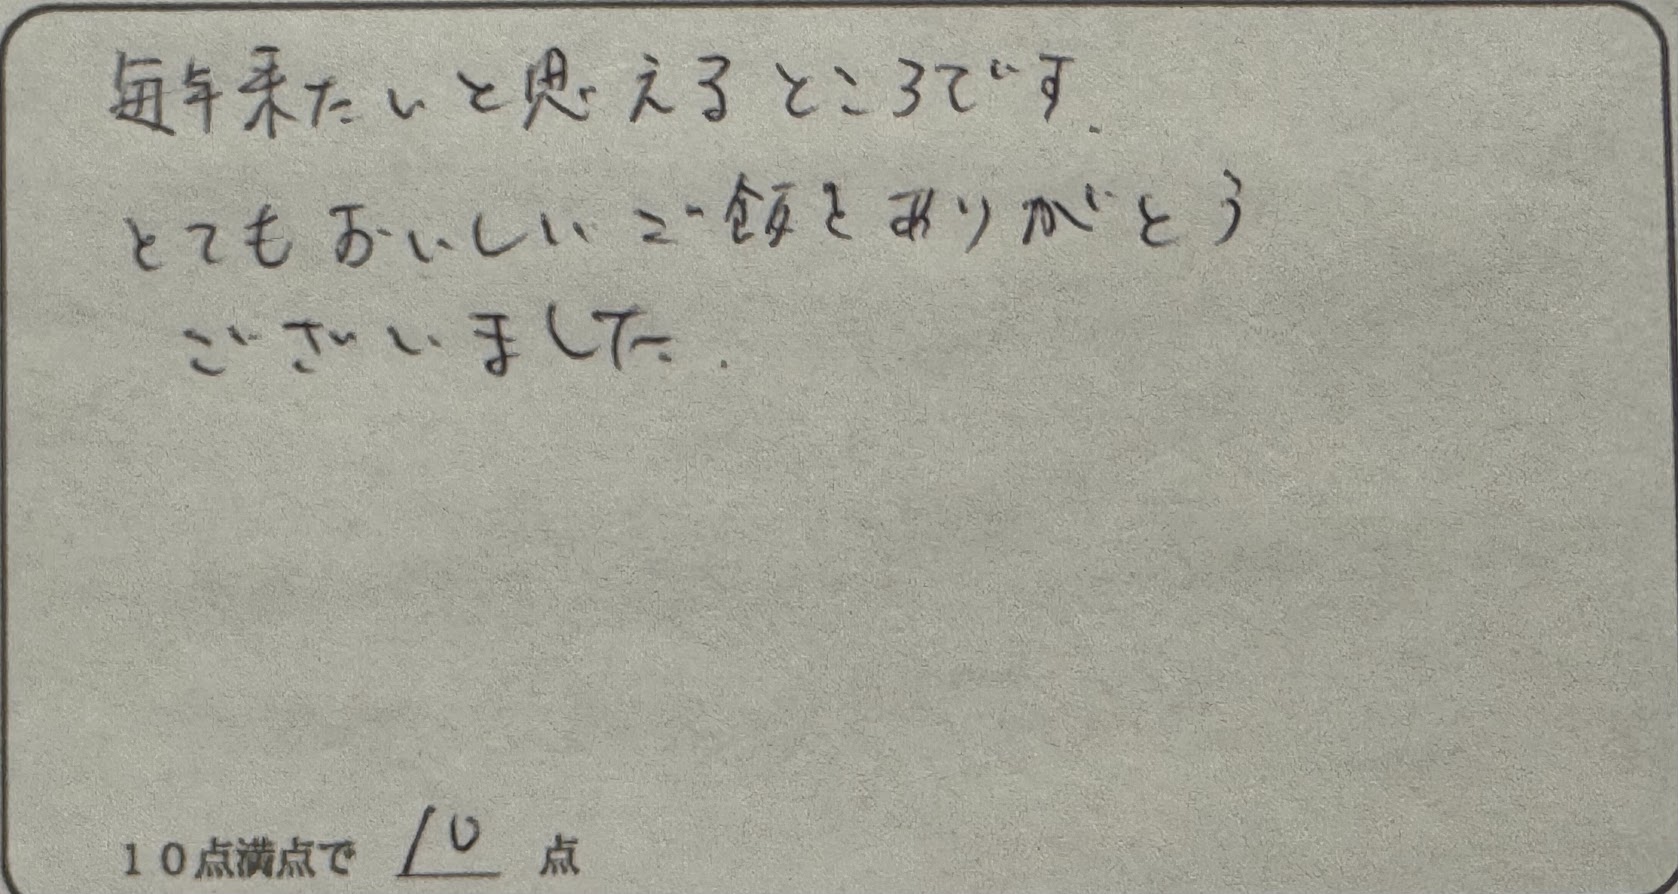 毎年来たいと思えるところです.
とてもおいしいご飯をありがとう
ございました.
10点満点で 10 点